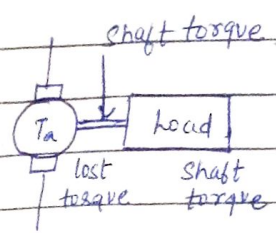 shaft torque
Ta
Load
lost
torque
Shaft
torque